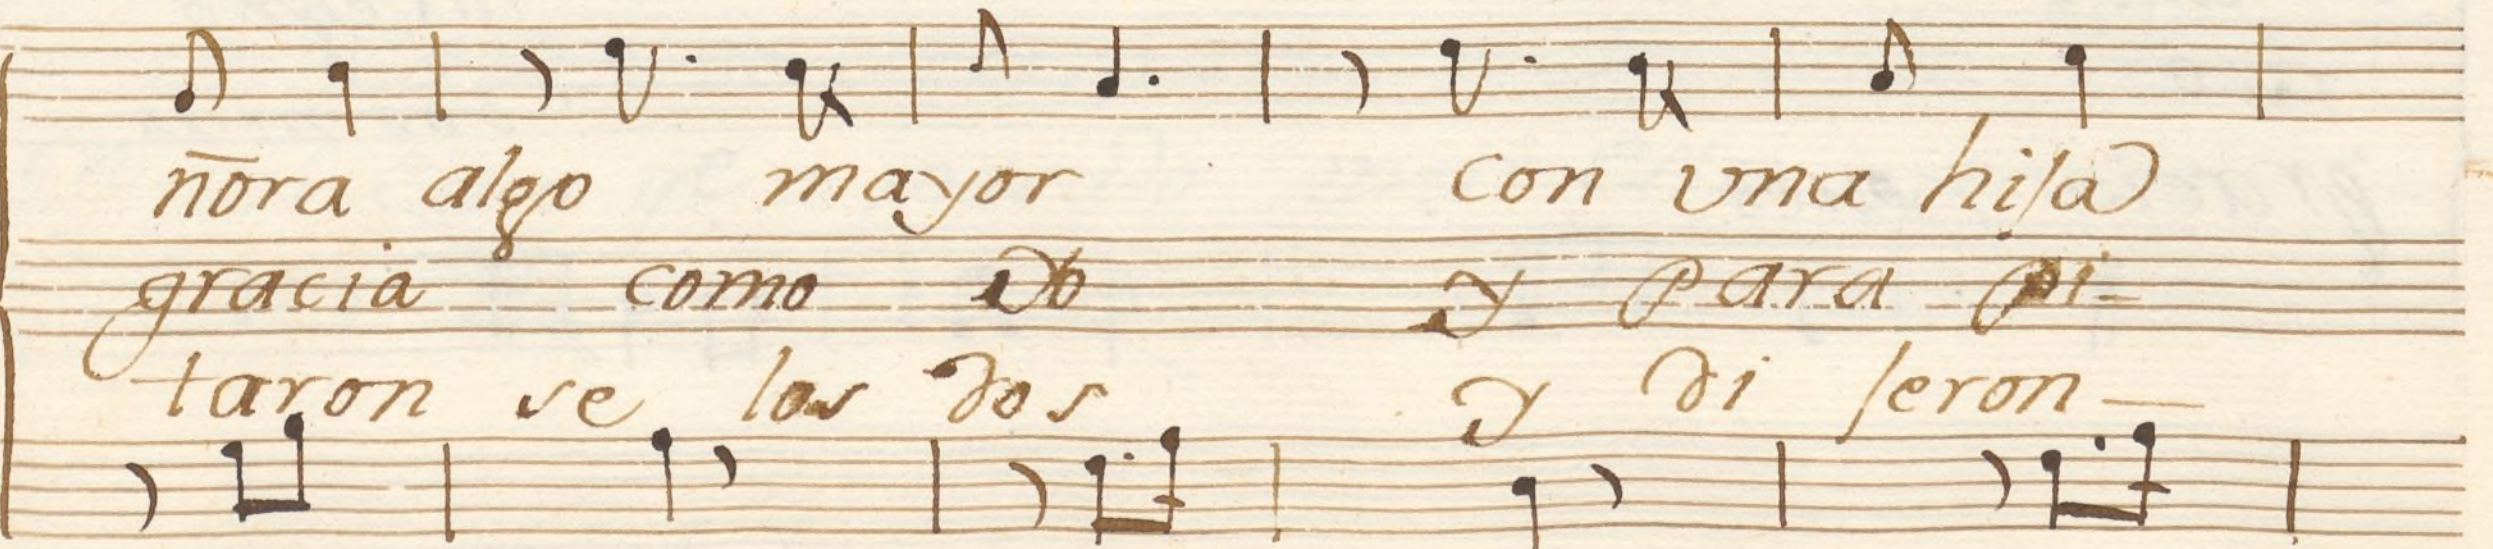 ñora algo mayor con vna hija
gracia como Yo y para pi-
taron se los dos y di jeron —